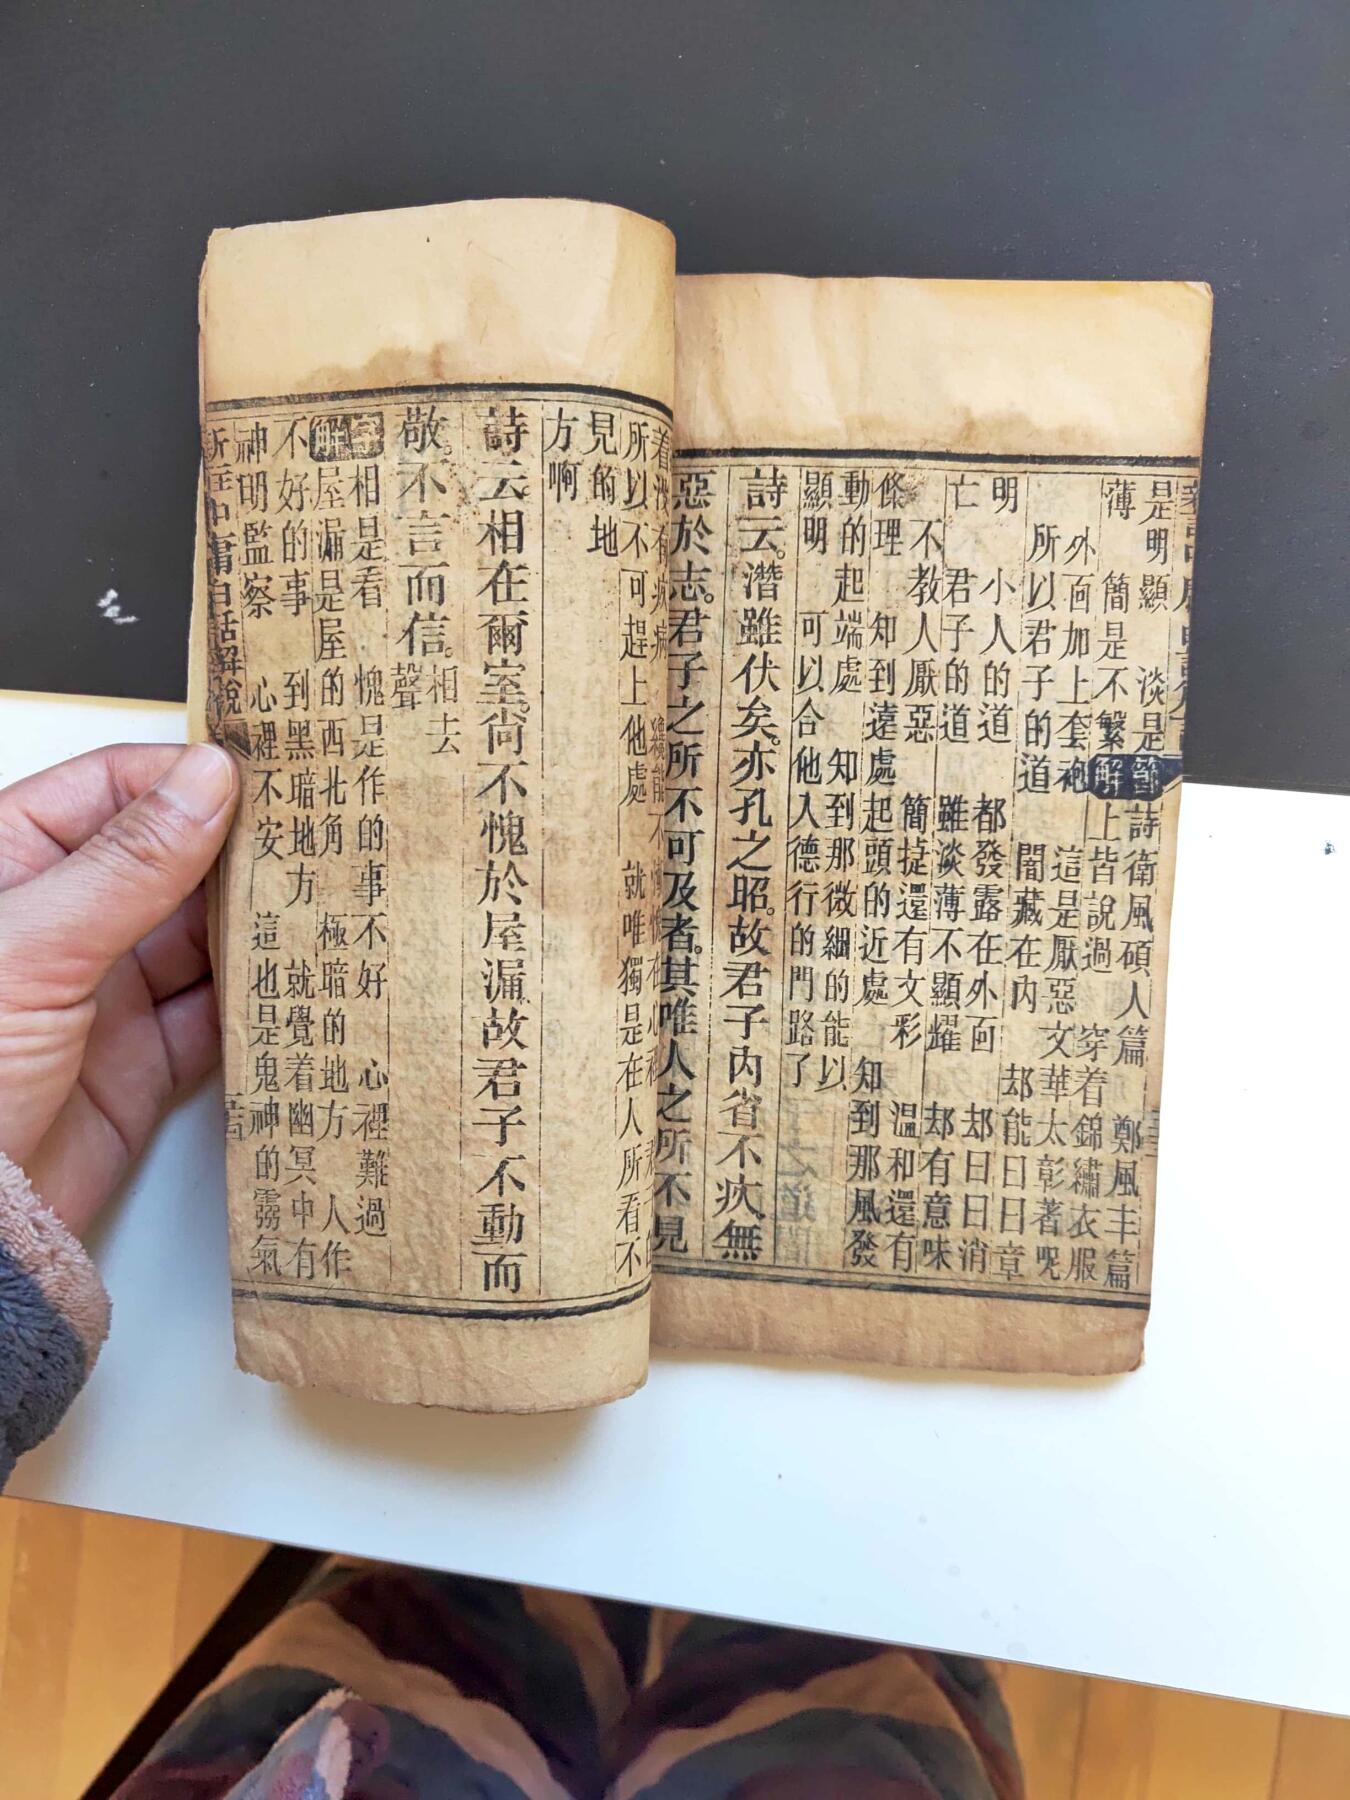 是明顯 淡是
節解
詩衛風碩人篇 鄭風丰篇
薄 簡是不繁
上皆說過 穿着錦繡衣服
外面加上套袍 這是厭惡文華太彰著呢
所以君子的道 闇藏在內 却能日日章
明 小人的道 都發露在外面 却日日消
亡 君子的道 雖淡薄不顯耀 却有意味
不教人厭惡 簡㨗還有文彩 溫和還有
條理 知到遠處起頭的近處 知到那風發
動的起端處 知到那微細的能以
顯明 可以合他入德行的門路了
詩云。潛雖伏矣。亦孔之昭。故君子內省不疚。無
惡於志。君子之所不可及者。其唯人之所不見
所以不可趕上他處 就唯獨是在人所看不
見的地
方啊
詩云。相在爾室。尙不愧於屋漏。故君子不動而
敬。不言而信。相去聲
字解
相是看 愧是作的事不好 心裡難過
屋漏是屋的西北角 極暗的地方 人作
不好的事 到黑暗地方 就覺着幽冥中有
神明監察 心裡不安 這也是鬼神的霧氣
新註中庸白話解說